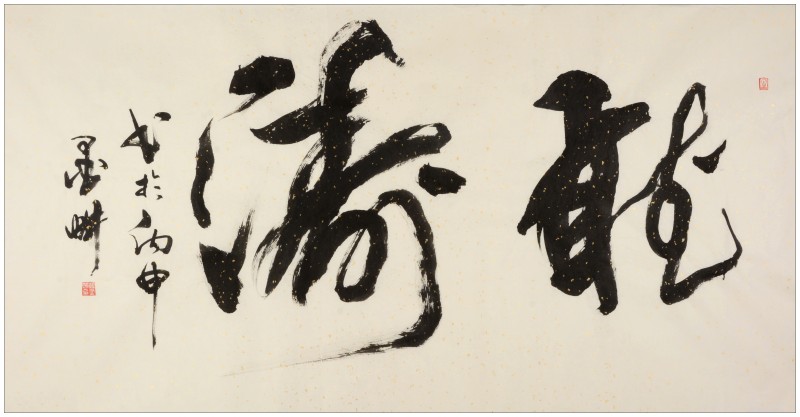 龍濤
书於丙申
墨畊